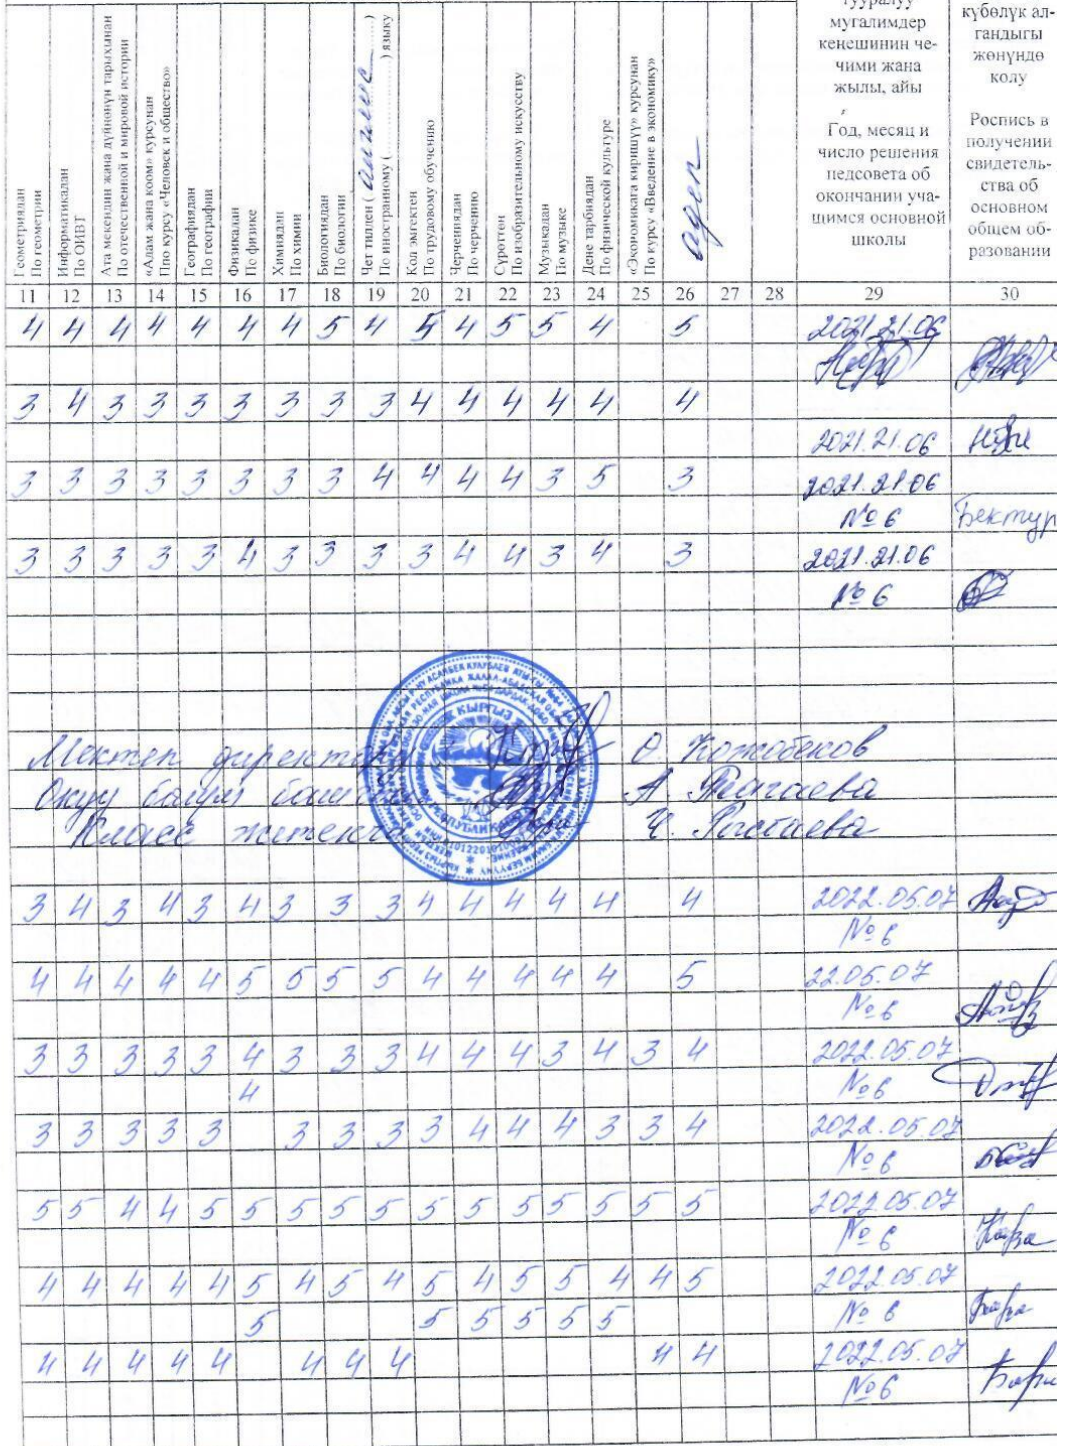 Геометриядан
По геометрии
Информатикадан
По ОИВТ
Ата мекендин жана дүйнөнүн тарыхынан
По отечественной и мировой истории
«Адам жана коом» курсунан
Ппо курсу «Человек и общество»
Географиядан
По географии
Физикадан
По физике
Химиядан
По химии
Биологиядан
По биологии
Чет тилден ( англис )
По иностранному ( ) языку
Кол эмгектен
По трудовому обучению
Черчениядан
По черчению
Сүроттөн
По изобразительному искусству
Музыкадан
По музыке
Дене тарбиядан
По физической культуре
«Экономикага киришүү» курсунан
По курсу «Введение в экономику»
адеп
тууралуу
мугалимдер
кеңешинин че-
чими жана
жылы, айы
Год, месяц и
число решения
педсовета об
окончании уча-
щимся основной
школы
күбөлүк ал-
гандыгы
жөнүндө
колу
Роспись в
получении
свидетель-
ства об
основном
общем об-
разовании
11 12 13 14 15 16 17 18 19 20 21 22 23 24 25 26 27 28 29 30
4 4 4 4 4 4 4 5 4 5 4 5 5 4 5 2021.21.06
3 4 3 3 3 3 3 3 3 4 4 4 4 4 4
2021.21.06
3 3 3 3 3 3 3 3 4 4 4 4 3 5 3 2021.21.06
№ 6 Бектур
3 3 3 3 3 4 3 3 3 3 4 4 3 4 3 2021.21.06
№ 6
Мектеп директору О. Кожобеков
Окуу бөлүм башчы А. Тагаева
Класс жетекчи Ч.
КЫРГЫЗ
РЕСПУБЛИКА
3 4 3 4 3 4 3 3 3 4 4 4 4 4 4 2022.05.07
№ 6
4 4 4 4 4 5 5 5 5 4 4 4 4 4 5 22.05.07
№ 6
3 3 3 3 3 4 3 3 3 4 4 4 3 4 3 4 2022.05.07
4 № 6
3 3 3 3 3 3 3 3 3 4 4 4 3 3 4 2022.05.07
№ 6
5 5 4 4 5 5 5 5 5 5 5 5 5 5 5 5 2022.05.07
№ 6
4 4 4 4 4 5 4 5 4 5 4 5 5 4 4 5 2022.05.07
5 5 5 5 5 5 № 6
4 4 4 4 4 4 4 4 4 4 2022.05.07
№ 6